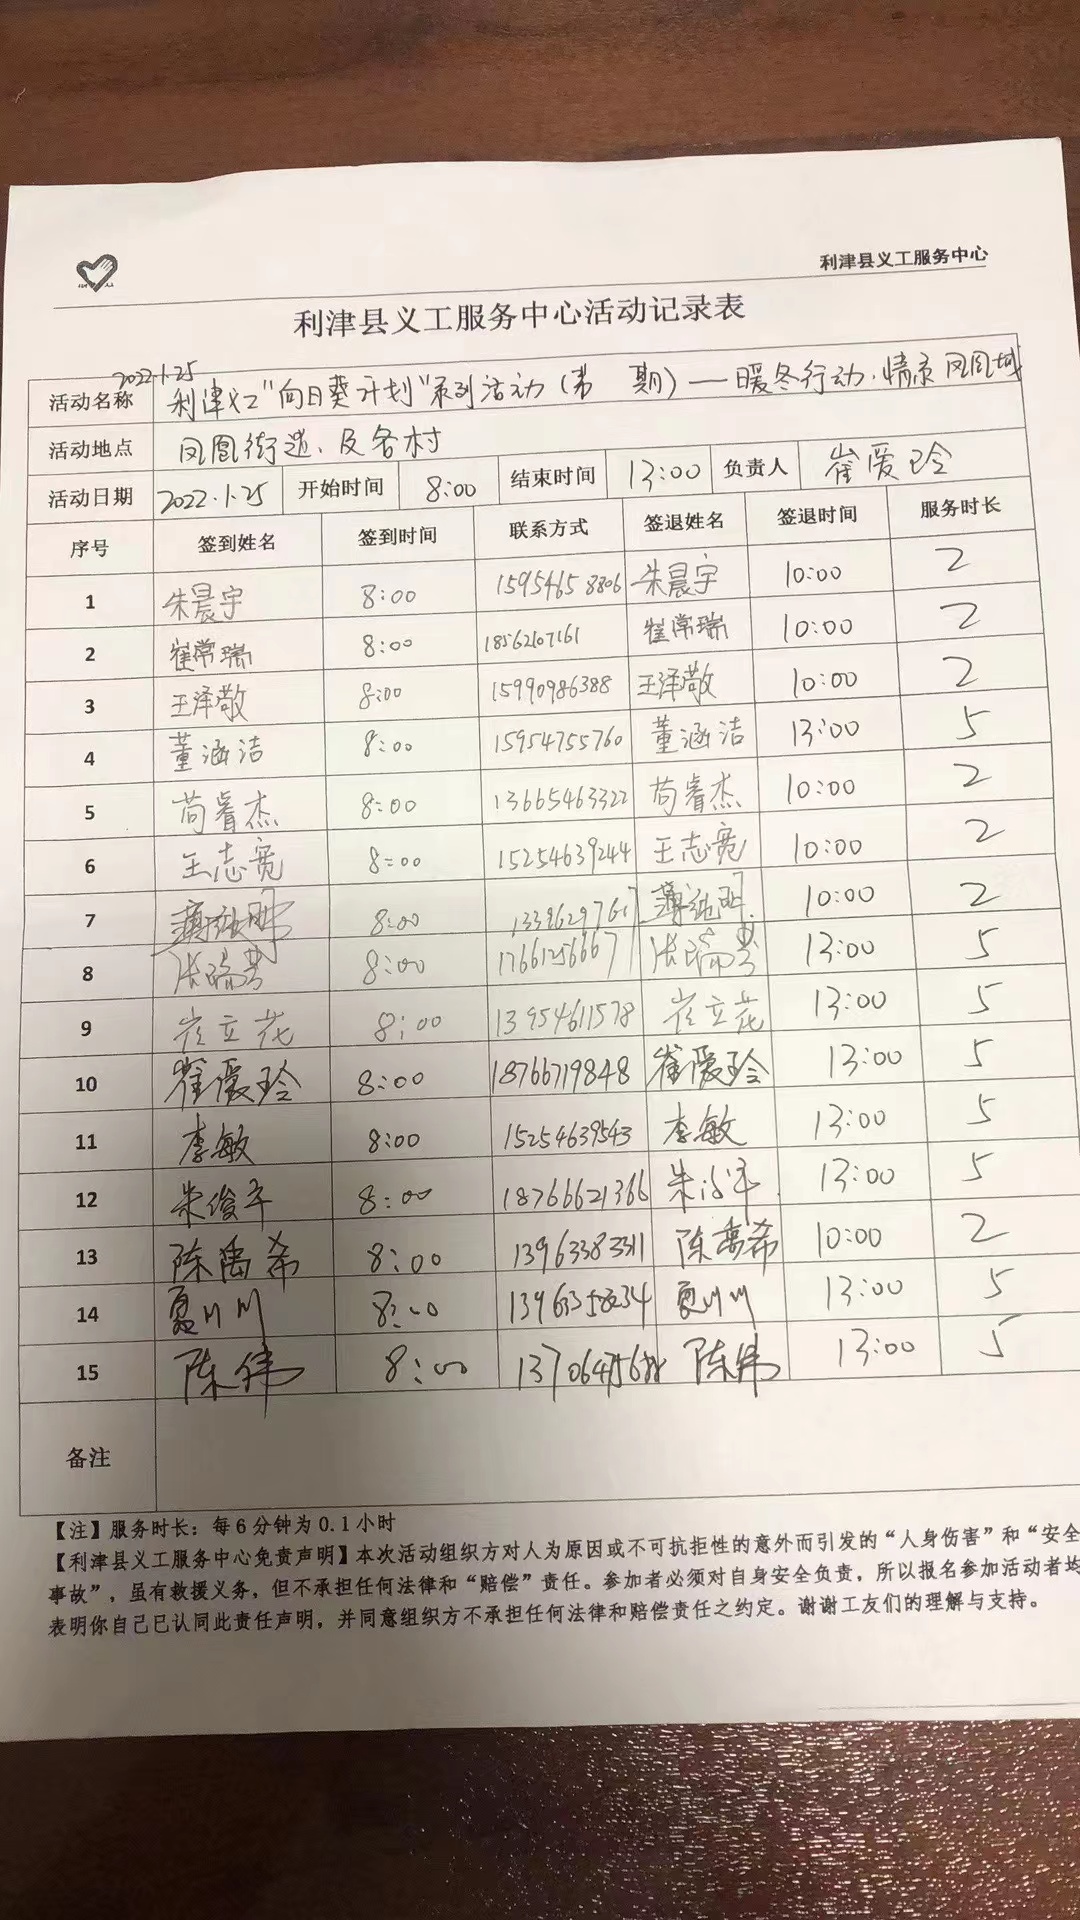 利津县义工服务中心
利津县义工服务中心活动记录表
2022.1.25
活动名称 利津义工“向日葵计划”系列活动(第 期)—暖冬行动.情系凤凰城
活动地点 凤凰街道、及各村
活动日期 2022.1.25 开始时间 8:00 结束时间 13:00 负责人 崔爱玲
序号 签到姓名 签到时间 联系方式 签退姓名 签退时间 服务时长
1 朱晨宇 8:00 15954658806 朱晨宇 10:00 2
2 崔常瑞 8:00 18562107161 崔常瑞 10:00 2
3 王泽敬 8:00 15990986388 王泽敬 10:00 2
4 董涵洁 8:00 15954755760 董涵洁 13:00 5
5 苟睿杰 8:00 13665463322 苟睿杰 10:00 2
6 王志宽 8:00 15254639244 王志宽 10:00 2
7 8:00 10:00 2
8 8:00 17661256667 13:00 5
9 崔立花 8:00 13954611578 崔立花 13:00 5
10 崔爱玲 8:00 18766719848 崔爱玲 13:00 5
11 李敏 8:00 15254639543 李敏 13:00 5
12 朱俊平 8:00 18766621366 朱俊平 13:00 5
13 陈禹希 8:00 13963383311 陈禹希 10:00 2
14 夏川川 8:00 夏川川 13:00 5
15 陈伟 8:00 陈伟 13:00 5
备注
【注】服务时长：每6分钟为0.1小时
【利津县义工服务中心免责声明】本次活动组织方对人为原因或不可抗拒性的意外而引发的“人身伤害”和“安全
事故”，虽有救援义务，但不承担任何法律和“赔偿”责任。参加者必须对自身安全负责，所以报名参加活动者均
表明你自己已认同此责任声明，并同意组织方不承担任何法律和赔偿责任之约定。谢谢工友们的理解与支持。